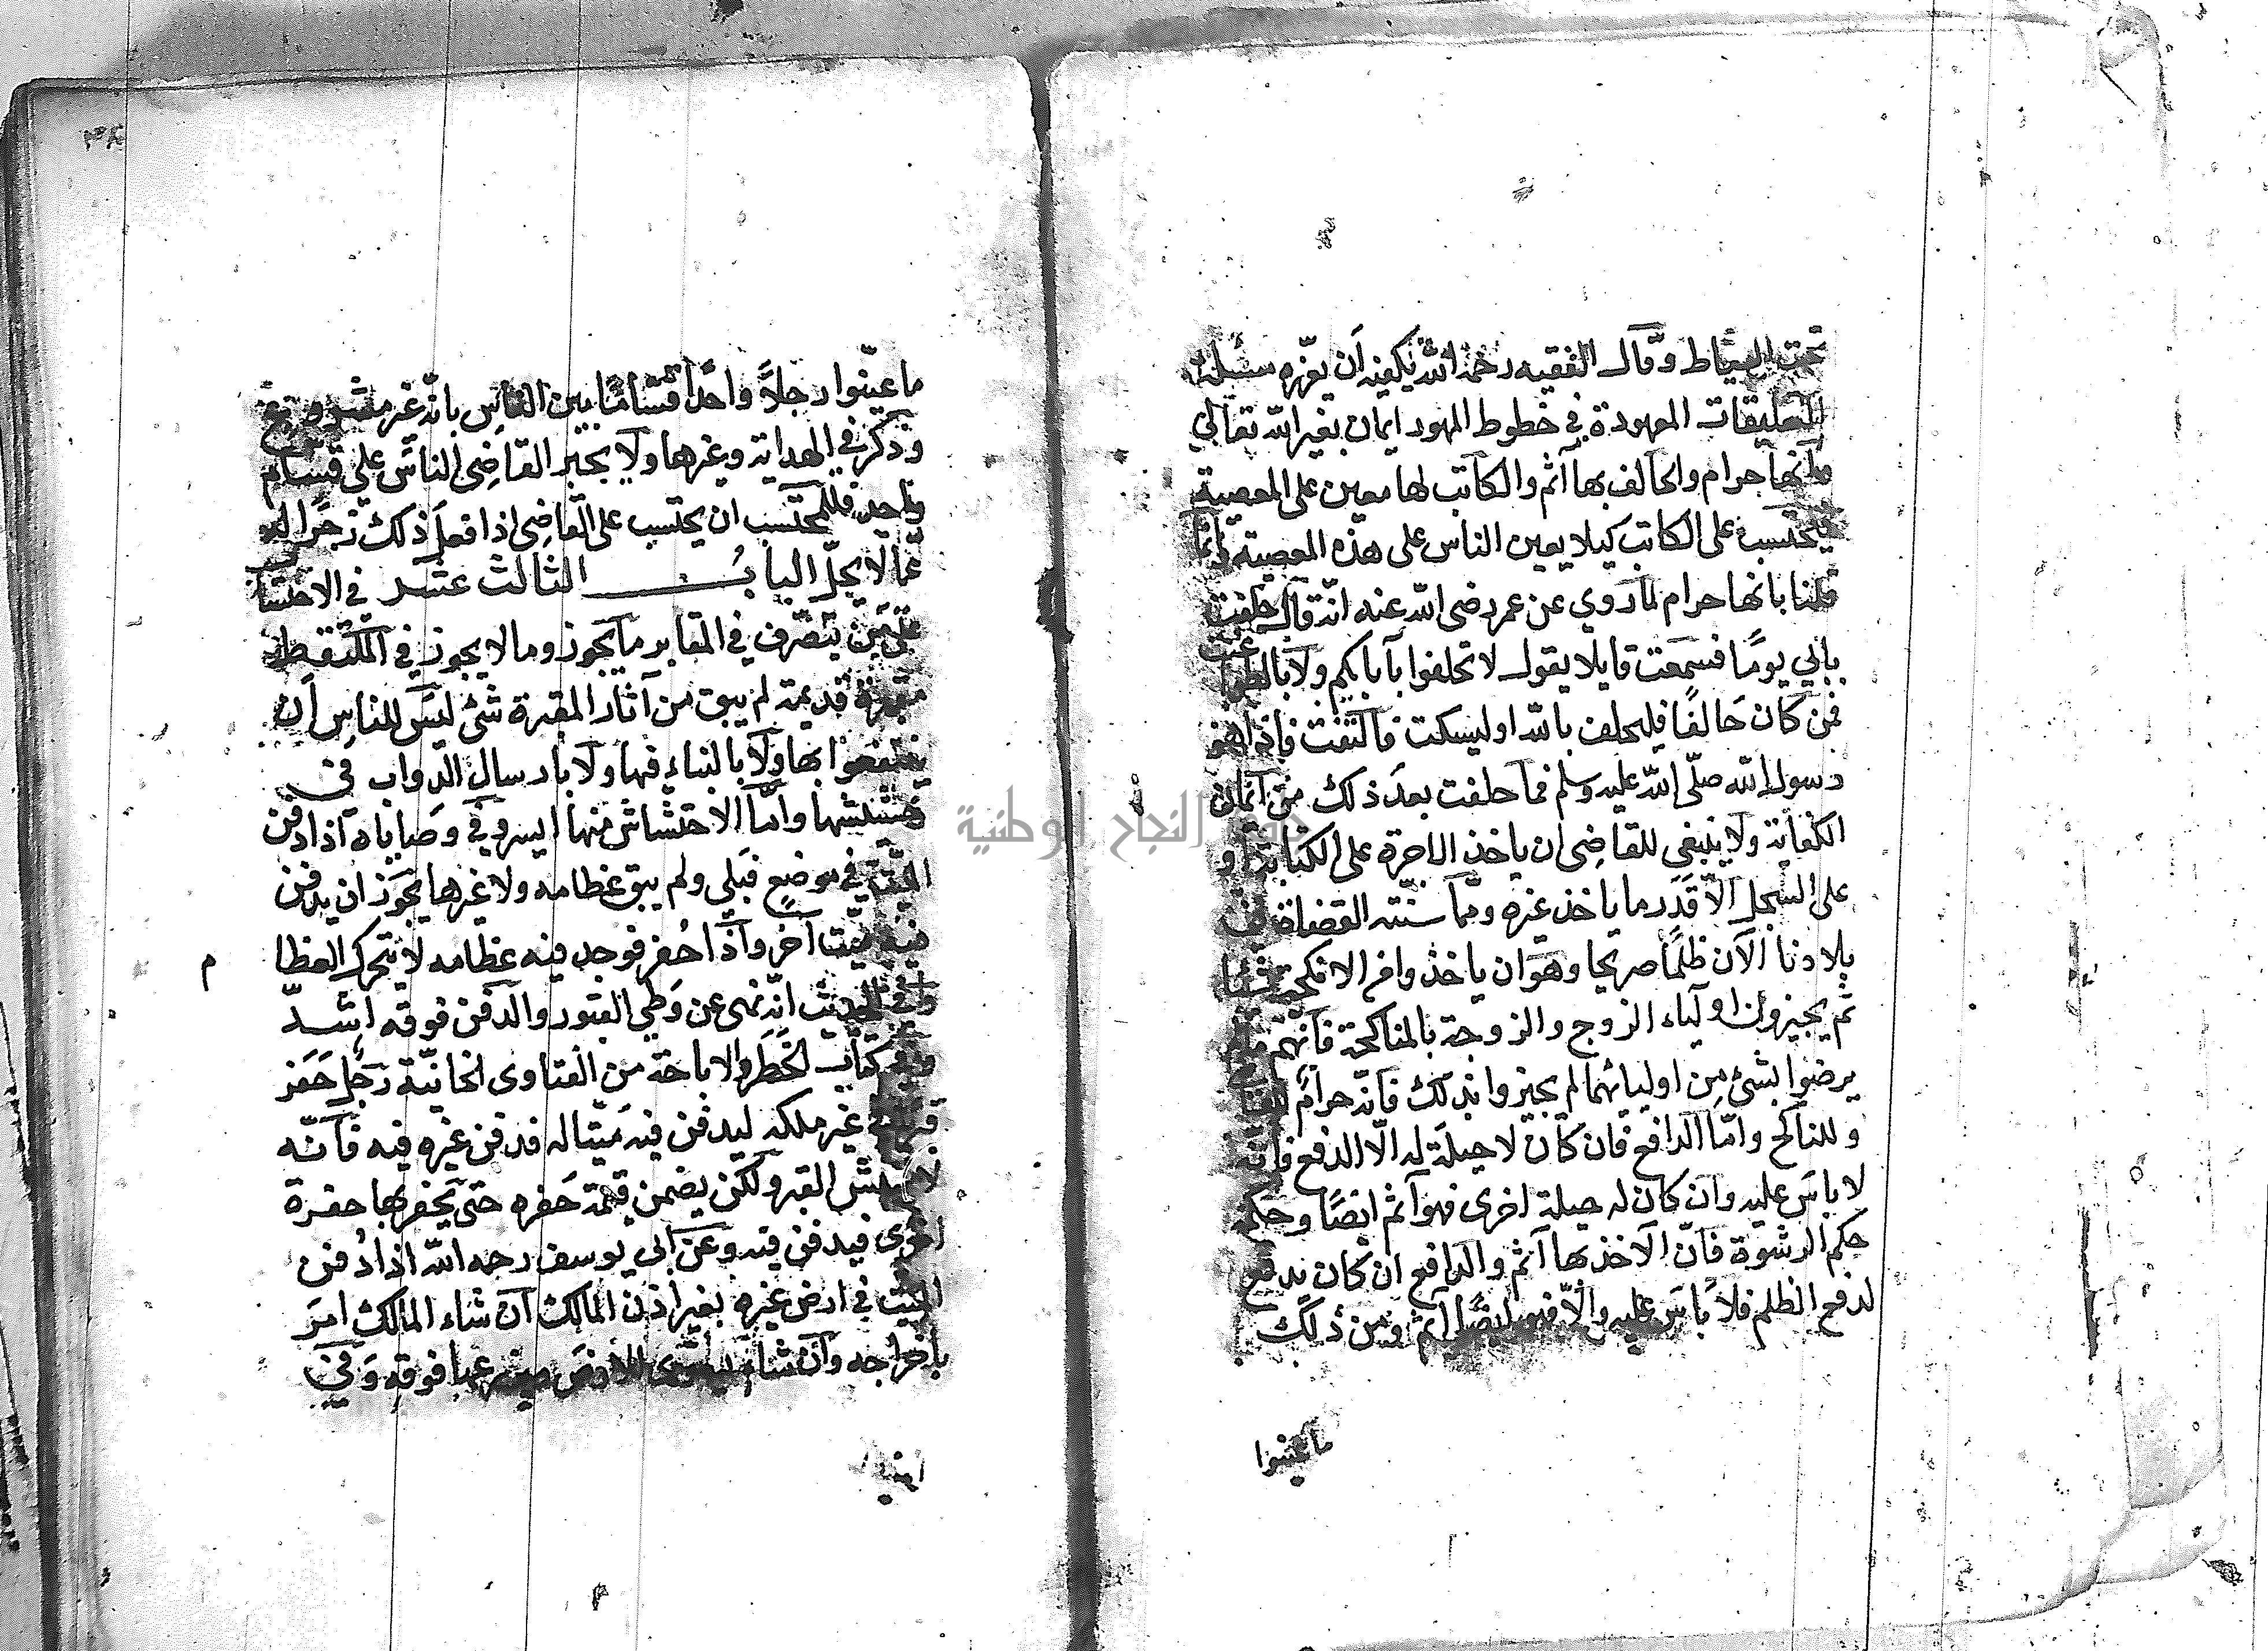 تحت السياط وقال الفقيه رحمه الله يكفيه أن يعزره مسئلة
التعليقات المعهودة في خطوط المهور ايمان بغير الله تعالي
وانها حرام والحالف بها آثم والكاتب لها معين على المعصية
فيحتسب على الكاتب كيلا يعين الناس على هذه المعصية وانما
قلنا بانها حرام لما روي عن عمر رضى الله عنه انه قال حلفت
بابي يومًا فسمعت قايلا يقول لا تحلفوا بآبائكم ولا بالطواغيت
فمن كان حالفًا فليحلف بالله او ليسكت فالتفت فاذا هو
رسول الله صلّى الله عليه وسلم فما حلفت بعد ذلك من ايمان
الكفاية ولا ينبغي للقاضى ان ياخذ الاجرة على الكتابة و
على السجل الّا قدر ما ياخذ غيره وممّا سنّته القضاة في
بلادنا الآن ظلمًا صريحا وهو ان ياخذ وافي الانكحة شيئا
ثم يجيزون اولياء الزوج والزوجة بالمناكحة فانهم مالم
يرضوا بشئ من اوليائهما لم يجيزوا بذلك فانه حرام للقاضى
وللناكح وامّا الدافع فان كان لا حيلة له الّا الدفع فانه
لا باس عليه وان كان له حيلة اخرى فهو آثم ايضًا وحكمه
حكم الرشوة فانّ الآخذ بها آثم والدافع ان كان يدفع
لدفع الظلم فلا باس عليه والّا فهو ايضًا آثم ومن ذلك
ما عينوا
٣٨
ما عيّنوا رجلاً واحدًا قسّامًا بين الناس بانّه غير مشروع
وذكر في الهداية وغيرها ولا يجبر القاضى الناس على قسام
واحد فللمحتسب ان يحتسب على القاضى اذا فعل ذلك زجرا له
عمّا لا يحلّ البابُ الثالث عشر في الاحتساب
على من يتصّرف في المقابر ما يجوز وما لا يجوز في الملتقط
مقبرة قديمة لم يبق من آثار المقبرة شئ ليس للناس ان
ينتفعوا بها ولا بالبناء فيها ولا بارسال الدواب في
حشيشها وامّا الاحتشاش منها ايسر وفي وصاياه اذا دفن
الميّت في موضع فبلي ولم يبق عظامه ولا غيرها يجوز ان يدفن
فيه ميت آخر واذا حُفر فوجد فيه عظامه لا يتحرك العظا
م
وفي الحديث انّه نهى عن وطي القبور والدفن فوقه اشدّ
وفي كتاب الحظر والاباحة من الفتاوى الخانيّة رجل حفر
قبرا في غير ملكه ليدفن فيه ميّتا له فدفن غيره فيه فانّه
لا ينبش القبر ولكن يضمن قيمة حفره حتى يحفر بها حفرة
اخرى فيدفن فيه وعن ابي يوسف رحمه الله اذا دُفن
الميّت في ارض غيره بغير اذن المالك ان شاء المالك امر
باخراجه وان شاء يسوى الارض فيزرعها فوقه وفي